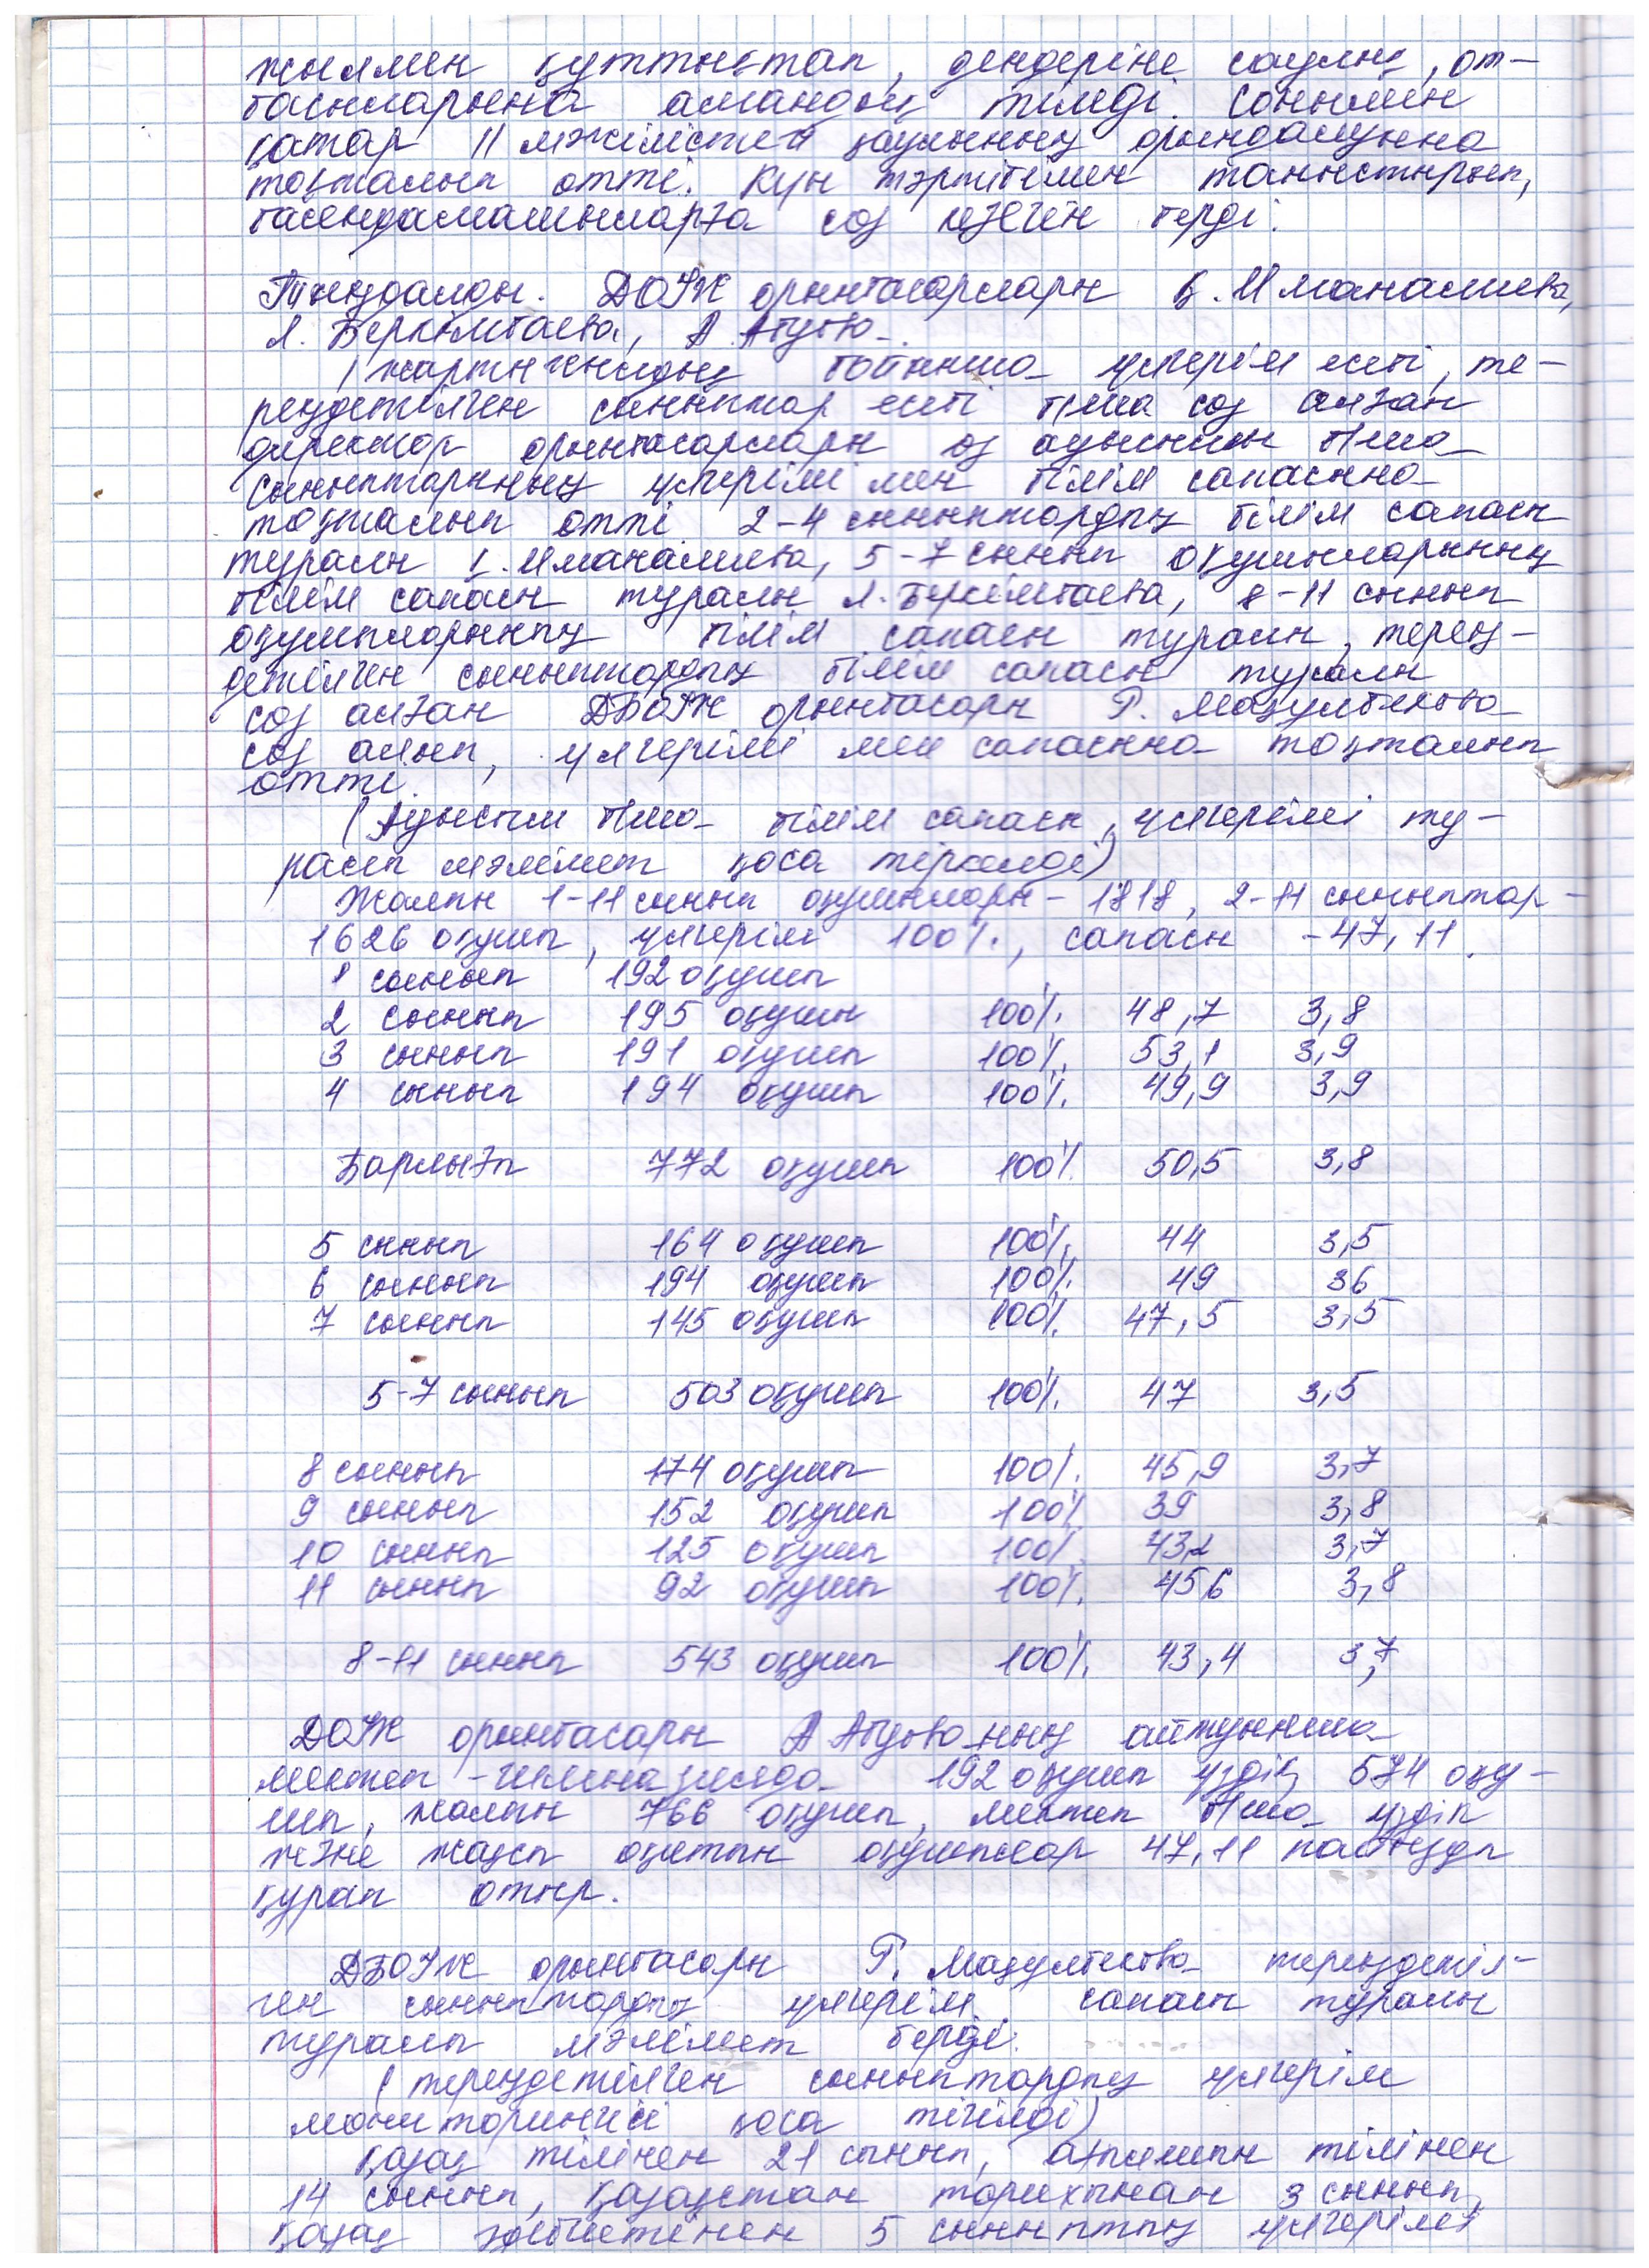 жылмен құттықтап, дендеріне саулық, от-
басыларына амандық тіледі. Сонымен
қатар II мәжілістен қаулының орындалуына
тоқталып өтті. Күн тәртібімен таныстырып,
баяндамашыларға сөз кезегін берді.
Тыңдалды. ДОІЖ орынбасарлары Қ. Иманалиева,
Л. Беркімбаева, А. Абуова.
I жартыжылдық бойынша үлгерім есебі, те-
реңдетілген сыныптар есебі б/ша сөз алған
директор орынбасарлары өз ауысым б/ша
сыныптарының үлгерімі мен білім сапасына
тоқталып өтті 2-4 сыныптардың білім сапасы
туралы Қ. Иманалиева, 5-7 сынып оқушыларының
білім сапасы туралы Л. Беркімбаева, 8-11 сынып
оқушыларының білім сапасы туралы, терең-
детілген сыныптардың білім сапасы туралы
сөз алған ДБОІЖ орынбасары Г. Мақұлбекова
сөз алып, үлгерімі мен сапасына тоқталып
өтті.
(Ауысым б/ша білім сапасы, үлгерімі ту-
ралы мәлімет қоса тіркелді)
Жалпы 1-11 сынып оқушылары - 1818, 2-11 сыныптар -
1626 оқушы, үлгерімі 100%, сапасы - 47,11.
1 сынып 192 оқушы
2 сынып 195 оқушы 100% 48,7 3,8
3 сынып 191 оқушы 100% 53,1 3,9
4 сынып 194 оқушы 100% 49,9 3,9
Барлығы 772 оқушы 100% 50,5 3,8
5 сынып 164 оқушы 100% 44 3,5
6 сынып 194 оқушы 100% 49 36
7 сынып 145 оқушы 100% 47,5 3,5
5-7 сынып 503 оқушы 100% 47 3,5
8 сынып 174 оқушы 100% 45,9 3,7
9 сынып 152 оқушы 100% 39 3,8
10 сынып 125 оқушы 100% 43,2 3,7
11 сынып 92 оқушы 100% 45,6 3,8
8-11 сынып 543 оқушы 100% 43,4 3,7
ДОІЖ орынбасары А Абуованың айтуынша
мектеп-гимназияда 192 оқушы үздік, 574 оқу-
шы, жалпы 766 оқушы, мектеп б/ша үздік
және жақсы оқитын оқушылар 47,11 пайызды
құрап отыр.
ДБОІЖ орынбасары Г. Мақұлбекова тереңдетіл-
ген сыныптардың үлгерім сапасы туралы
туралы мәлімет берді.
(тереңдетілген сыныптардың үлгерім
мониторингісі қоса тігілді)
Қазақ тілінен 21 сынып, ағылшын тілінен
14 сынып, Қазақстан тарихынан 3 сынып,
қазақ әдебиетінен 5 сыныптың үлгерімі